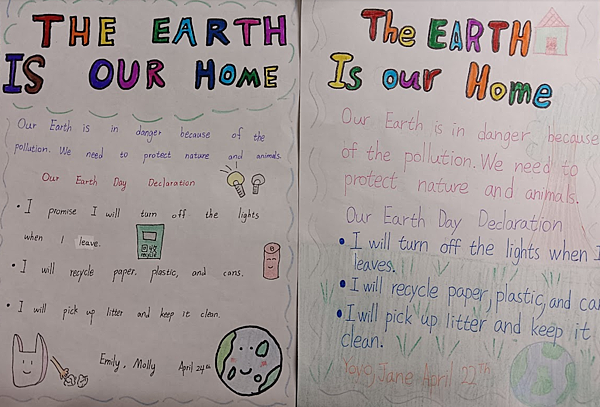 THE EARTH
IS OUR HOME
Our Earth is in danger because of the
pollution. We need to protect nature and animals.
Our Earth Day Declaration
• I promise I will turn off the lights
when I leave.
• I will recycle paper. plastic, and cans.
• I will pick up litter and keep it clean.
Emily, Molly April 24th
The EARTH
Is our Home
Our Earth is in danger because
of the pollution. We need to
protect nature and animals.
Our Earth Day Declaration
• I will turn off the lights when I
leaves.
• I will recycle paper, plastic, and ca
• I will pick up litter and keep it
clean.
Jane April 22th